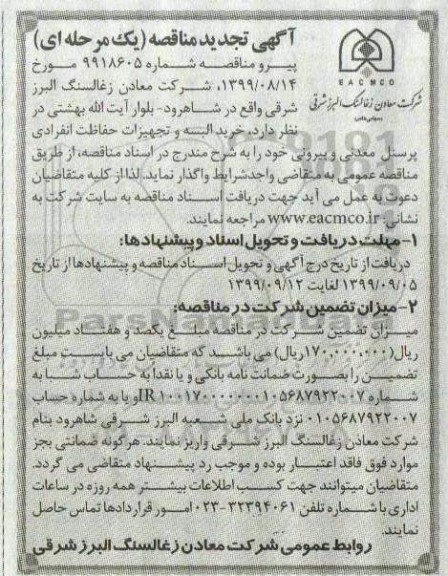 آگهی تجدید مناقصه (یک مرحله ای)
EACMCO
شرکت معادن زغالسنگ البرز شرقی
(سهامی خاص)
پیرو مناقصه شماره ۹۹۱۸۶۰۵ مورخ
۱۳۹۹/۰۸/۱۴، شرکت معادن زغالسنگ البرز
شرقی واقع در شاهرود- بلوار آیت الله بهشتی در
نظر دارد، خرید البسه و تجهیزات حفاظت انفرادی
پرسنل معدنی و بیرونی خود را به شرح مندرج در اسناد مناقصه، از طریق
مناقصه عمومی به متقاضی واجد شرایط واگذار نماید. لذا از کلیه متقاضیان
دعوت به عمل می آید جهت دریافت اسناد مناقصه به سایت شرکت به
نشانی: www.eacmco.ir مراجعه نمایند.
۱- مهلت دریافت و تحویل اسناد و پیشنهادها:
دریافت از تاریخ درج آگهی و تحویل اسناد مناقصه و پیشنهادها از تاریخ
۱۳۹۹/۰۹/۰۵ لغایت ۱۳۹۹/۰۹/۱۲
۲- میزان تضمین شرکت در مناقصه:
میزان تضمین شرکت در مناقصه مبلغ یکصد و هفتاد میلیون
ریال (۱۷۰,۰۰۰,۰۰۰ ریال) می باشد که متقاضیان می بایست مبلغ
تضمین را بصورت ضمانت نامه بانکی و یا نقدا به حساب شبا به
شماره IR۱۰۰۱۷۰۰۰۰۰۰۰۱۰۵۶۸۷۹۲۲۰۰۷ و یا به شماره حساب
۰۱۰۵۶۸۷۹۲۲۰۰۷ نزد بانک ملی شعبه البرز شرقی شاهرود بنام
شرکت معادن زغالسنگ البرز شرقی واریز نمایند. هرگونه ضمانتی بجز
موارد فوق فاقد اعتبار بوده و موجب رد پیشنهاد متقاضی می گردد.
متقاضیان میتوانند جهت کسب اطلاعات بیشتر همه روزه در ساعات
اداری با شماره تلفن ۳۲۳۹۴۰۶۱-۰۲۳ امور قراردادها تماس حاصل
نمایند.
روابط عمومی شرکت معادن زغالسنگ البرز شرقی